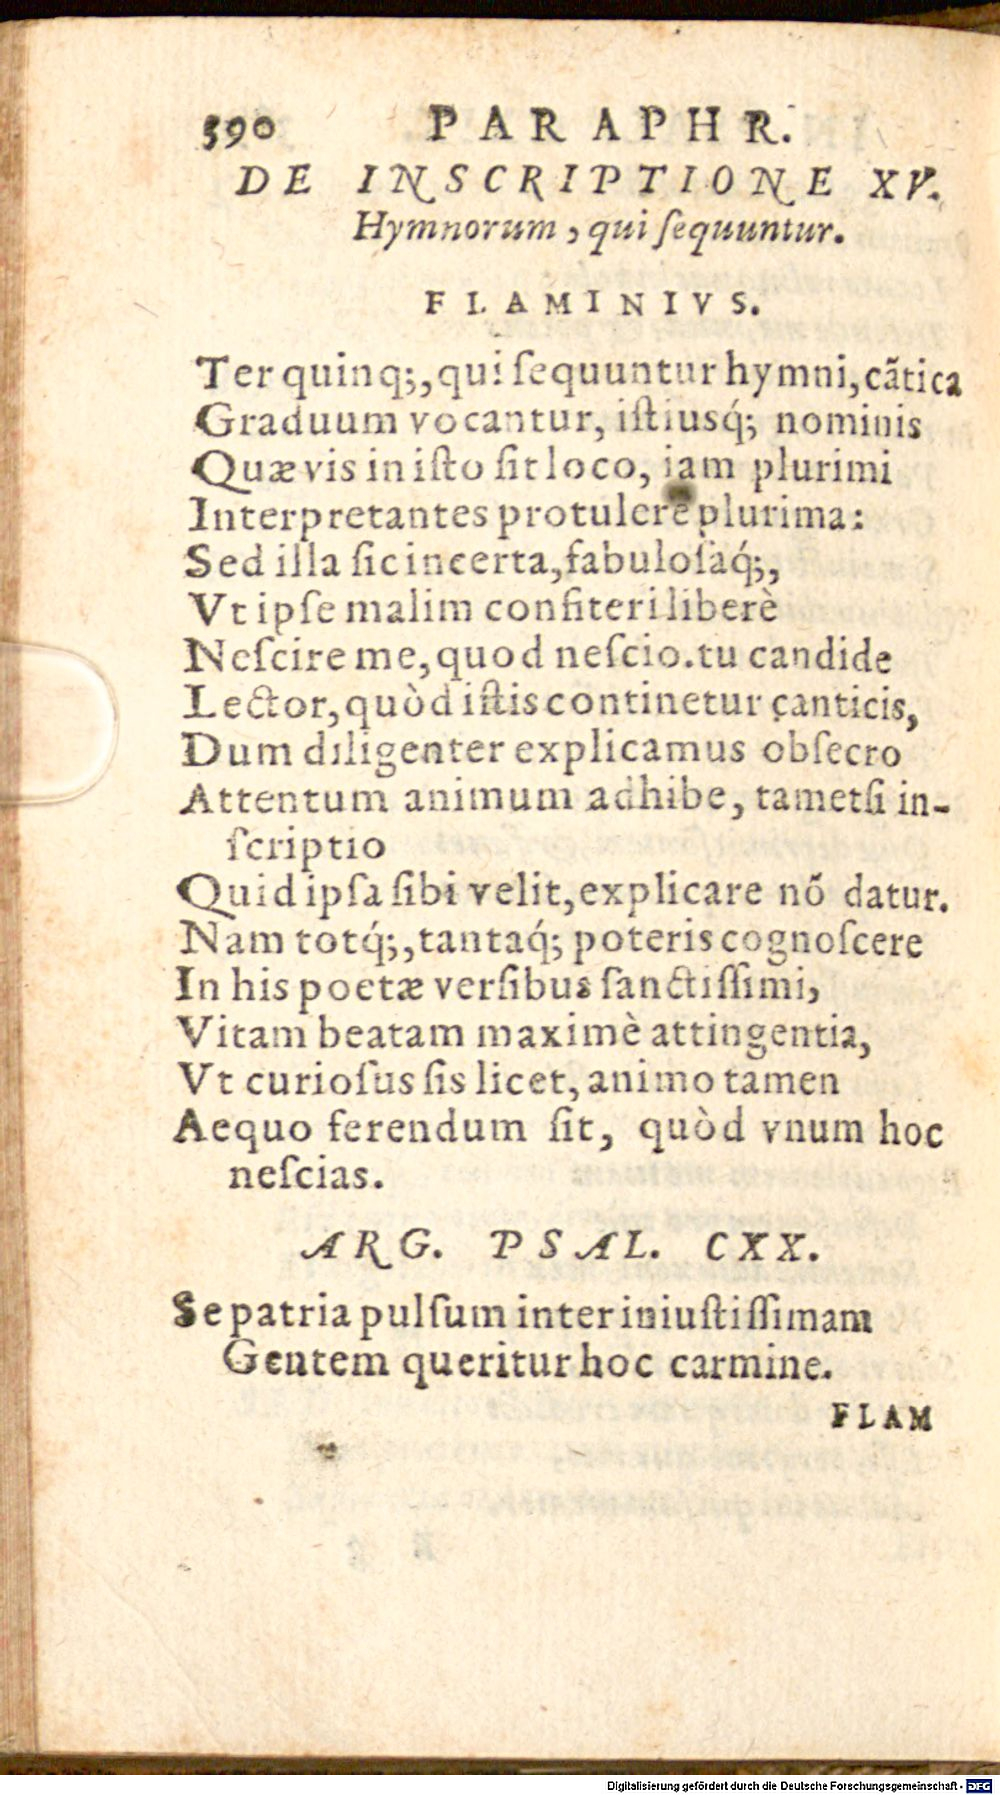 390 PARAPHR.
DE INSCRIPTIONE XV.
Hymnorum, qui ſequuntur.
FLAMINIVS.
Ter quinq;, qui ſequuntur hymni, cãtica
Graduum vocantur, iſtiusq́; nominis
Quæ vis in iſto ſit loco, iam plurimi
Interpretantes protulere plurima:
Sed illa ſic incerta, fabuloſaq́;,
Vt ipſe malim confiteri liberè
Neſcire me, quod neſcio. tu candide
Lector, quòd iſtis continetur canticis,
Dum diligenter explicamus obſecro
Attentum animum adhibe, tametſi in-
ſcriptio
Quid ipſa ſibi velit, explicare nõ datur.
Nam totq́;, tantaq́; poteris cognoſcere
In his poetæ verſibus ſanctiſſimi,
Vitam beatam maximè attingentia,
Vt curioſus ſis licet, animo tamen
Aequo ferendum ſit, quòd vnum hoc
neſcias.
ARG. PSAL. CXX.
Se patria pulſum inter iniuſtiſſimam
Gentem queritur hoc carmine.
FLAM
Digitalisierung gefördert durch die Deutsche Forschungsgemeinschaft - DFG